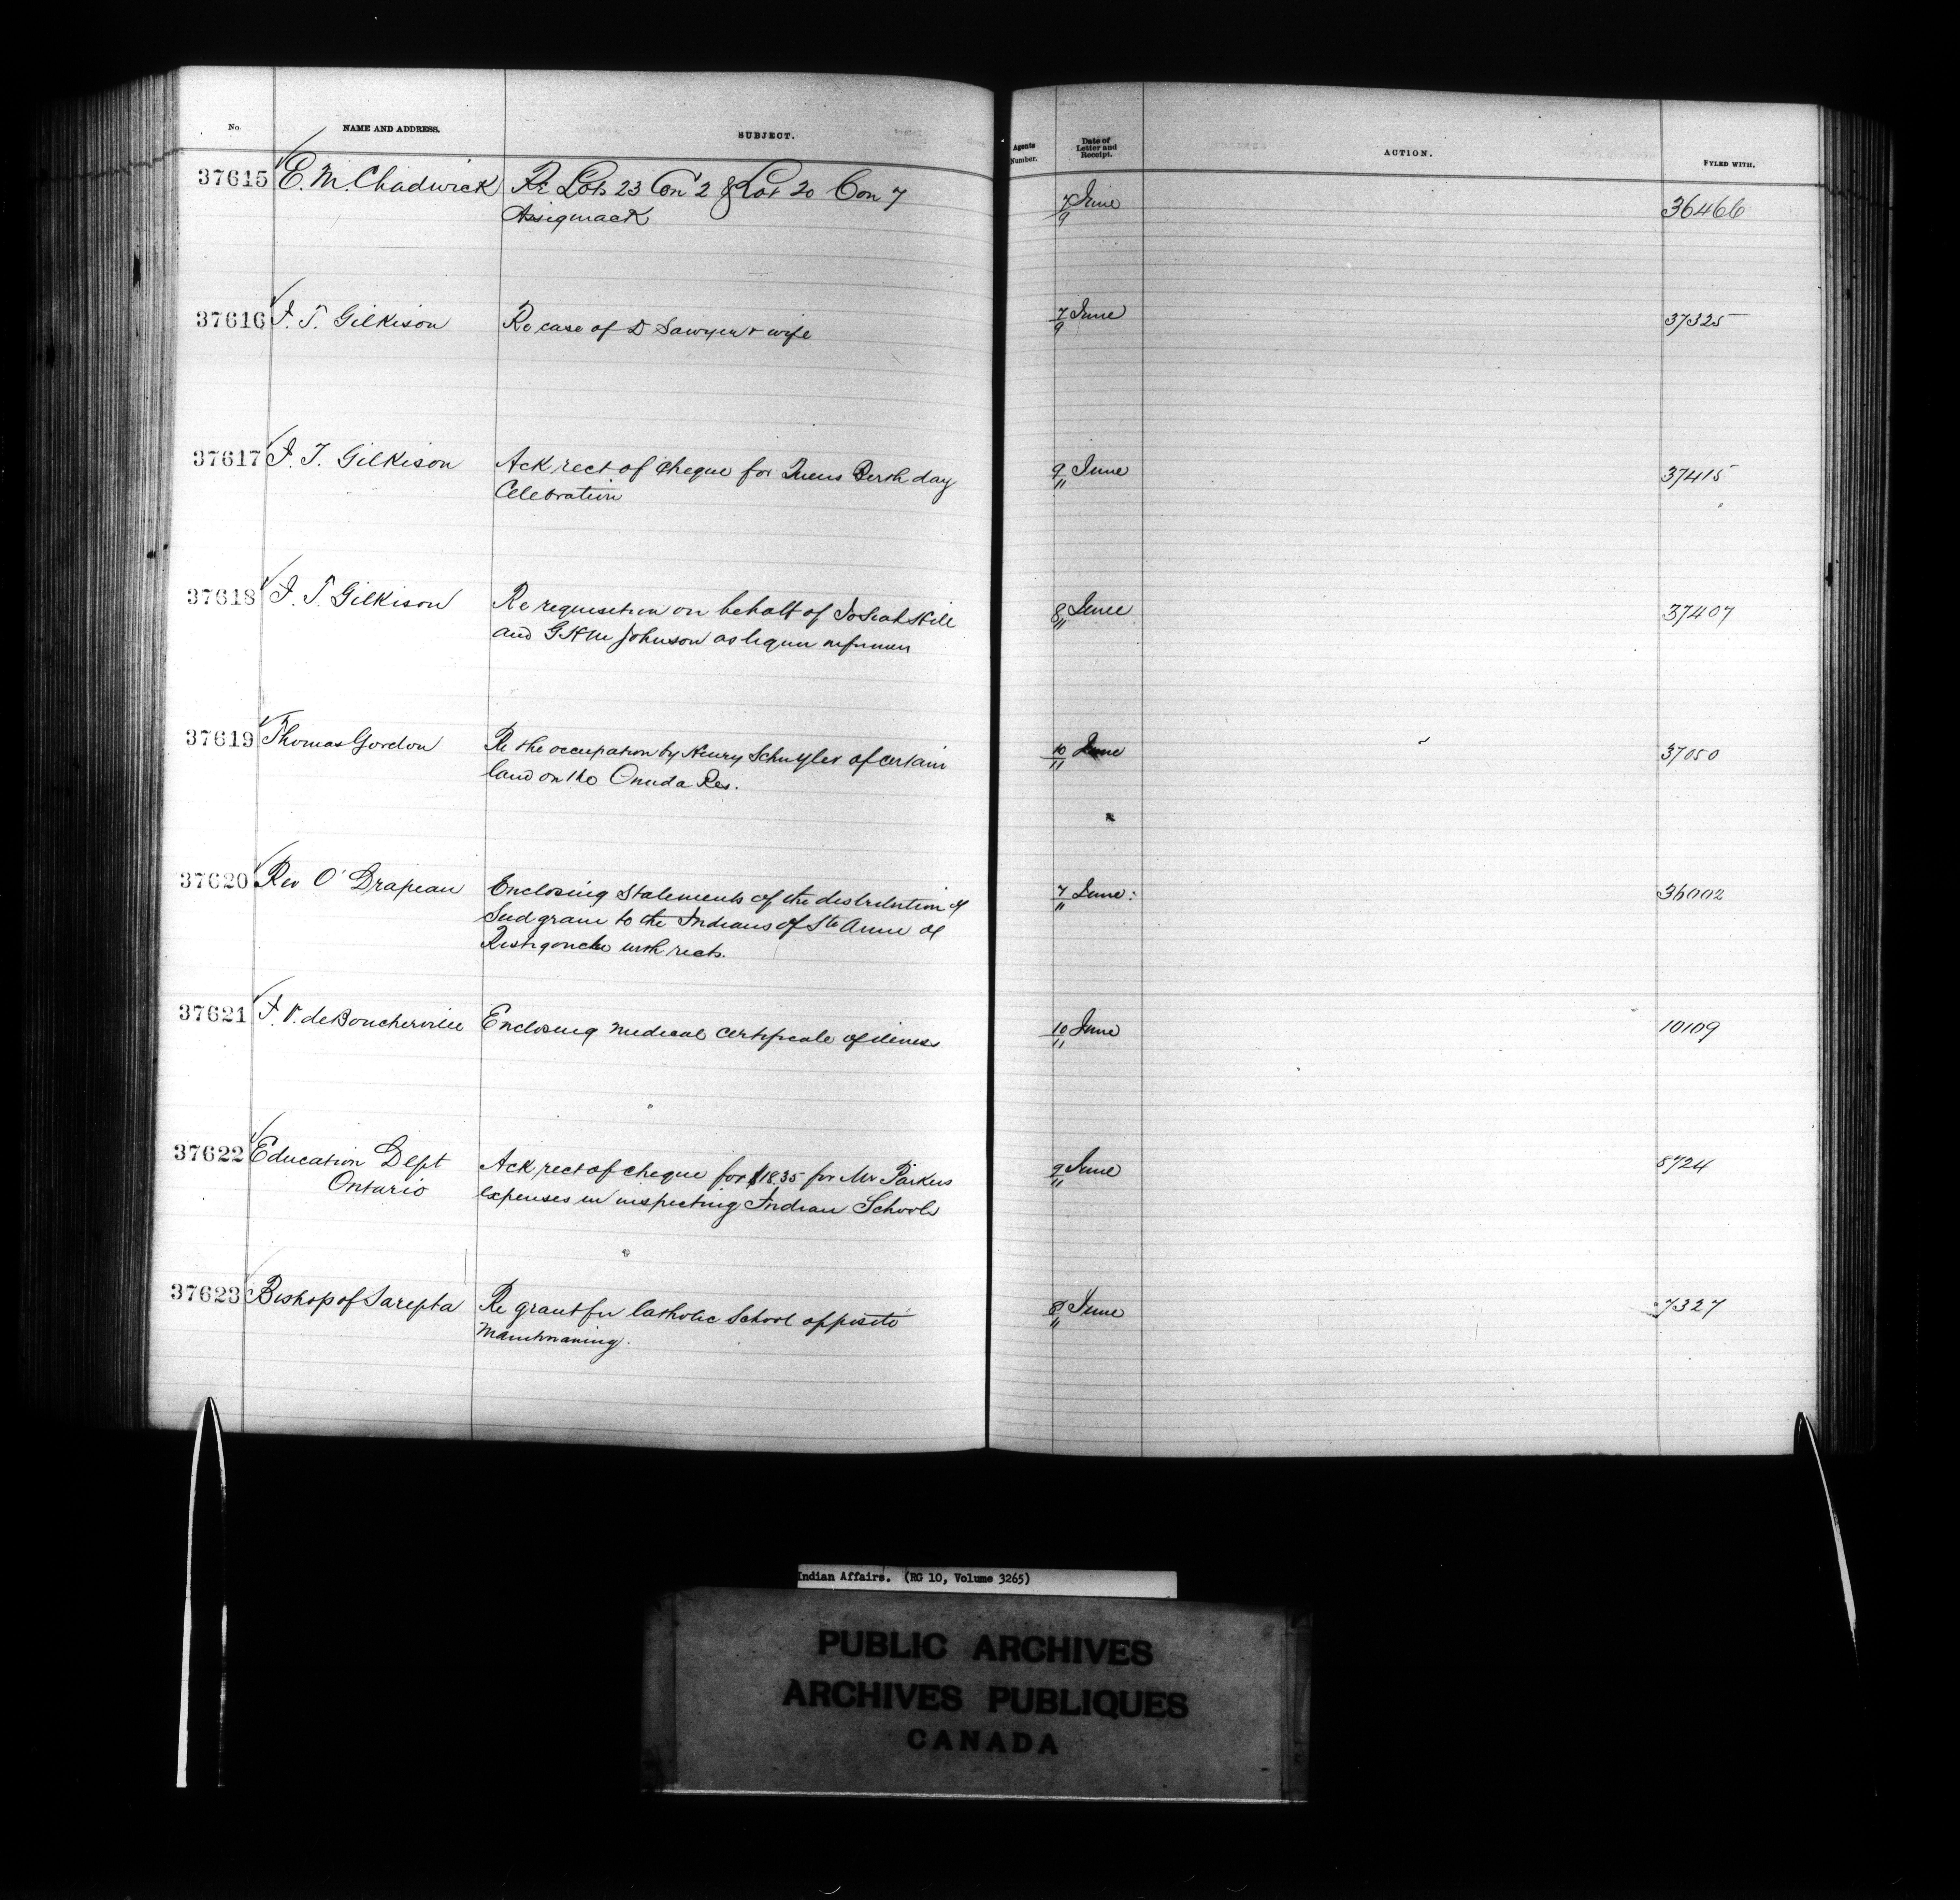 No. NAME AND ADDRESS. SUBJECT. Agents Number. Date of Letter and Receipt. ACTION. FYLED WITH.
37615 E. M. Chadwick Re Lots 23 Con 2 & Lot 20 Con 7 7/9 June 36466
Assiginack
37616 J. T. Gilkison Re case of D Sawyer & wife 7/9 June 37325
37617 J. T. Gilkison Ack rect of cheque for Queens Birth day 9/11 June 37415
Celebration
37618 J. T. Gilkison Re requisition on behalf of Josiah Hill 8/11 June 37407
and G H M Johnson as liquor informers
37619 Thomas Gordon Re the occupation by Henry Schuyler of certain 10/11 June 37050
land on the Oneida Res.
37620 Rev O' Drapeau Enclosing statements of the distribution of 7/11 June 36002
seed grain to the Indians of Ste Anne de
Restigouche with rects.
37621 F. V. de Boucherville Enclosing medical certificate of illness 10/11 June 10109
37622 Education Dept Ack rect of cheque for $18.35 for Mr Parkers 9/11 June 8724
Ontario expenses in inspecting Indian Schools
37623 Bishop of Sarepta Re grant for Catholic School opposite 8/11 June 7327
Manitowaning.
Indian Affairs. (RG 10, Volume 3265)
PUBLIC ARCHIVES
ARCHIVES PUBLIQUES
CANADA